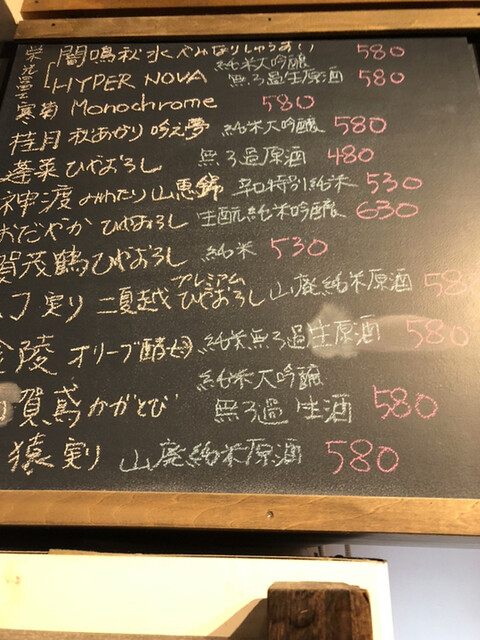 栄光冨士 闇鳴秋水 やみなりしゅうすい 純米大吟醸 580
HYPER NOVA 無ろ過生原酒 580
寒菊 Monochrome 580
桂月 秋あかり 吟之夢 純米大吟醸 580
蓬莱 ひやおろし 無ろ過原酒 480
神渡 みわたり 山恵錦 辛口特別純米 530
おだやか ひやおろし 生酛純米吟醸 630
賀茂鶴 ひやおろし 純米 530
実り 二夏越 プレミアム ひやおろし 山廃純米原酒 58
金陵 オリーブ酵母 純米無ろ過生原酒 580
賀鳶 かがとび 純米大吟醸 無ろ過生酒 580
猿 実り 山廃純米原酒 580